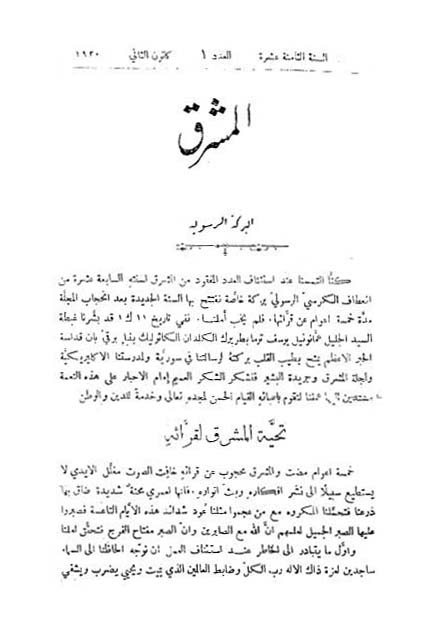 السنة الثامنة عشرة العدد ١ كانون الثاني ١٩٢٠
المشرق
البركة الرسولية
كنّا التمسنا عند استئناف العدد المفقود من المشرق لسنتهِ السابعة عشرة من
انعطاف الكرسيّ الرسوليّ بركة خاصّة نفتتح بها السنة الجديدة بعد انحجاب المجلّة
مدّة خمسة اعوام عن قرّائها. فلم يخب أملنا. ففي تاريخ ١١ ك١ قد بشّرنا غبطة
السيد الجليل عمانوئيل يوسف توما بطريرك الكلدان الكاثوليك بنبإٍ برقيّ بان قداسة
الحبر الاعظم يمنح بطيب القلب بركته لرسالتنا في سوريّة ولمدرستنا الاكليريكيّة
ولمجلة المشرق وجريدة البشير فنشكر الشكر العميم إمام الاحبار على هذه النعمة
عسانا لنقوم باعبائه القيام الحسن لمجدهِ تعالى وخدمة للدين والوطن
تحيّة المشرق لقرّائهِ
خمسة اعوام مضت والمشرق محجوب عن قرائهِ خافت الصوت مغلّل الايدي لا
يستطيع سبيلًا الى نشر افكارهِ وبثّ انوارهِ. فانها لعمري محنةٌ شديدة ضاق بها
ذرعنا فتحمّلنا المكروه مع من عجموا مثلنا عُود شدائد هذه الأيّام التاعسة فصبروا
عليها الصبر الجميل لعلمهم انّ الله مع الصابرين وانّ الصبر مفتاح الفرج فتحقّق املنا
واوّل ما يتبادر الى الخاطر عند استئناف العمل ان نوجّه الحاظنا الى السماء
ساجدين لعزة ذاك الاله رب الكلّ وضابط العالمين الذي يميت ويحيي يضرب ويشفي